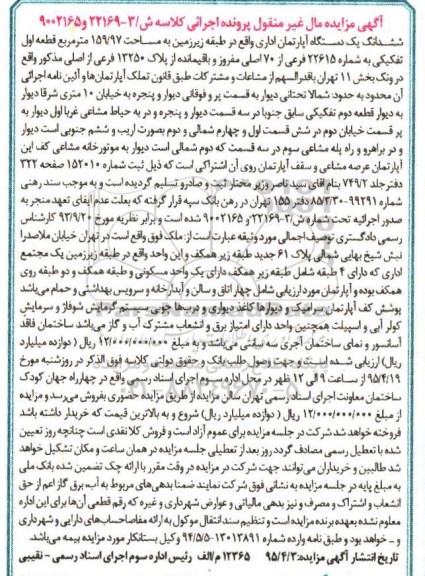 آگهی مزایده مال غیر منقول پرونده اجرائی کلاسه ش/۳-۲۲۱۶۹ و ۹۰۰۲۱۶۵
ششدانگ یک دستگاه آپارتمان اداری واقع در طبقه زیرزمین به مساحت ۱۵۹/۹۷ مترمربع قطعه اول
تفکیکی به شماره ۲۲۶۱۵ فرعی از ۷۰ اصلی مفروز و باقیمانده از پلاک ۱۳۲۵۰ فرعی از اصلی مذکور واقع
در ونک بخش ۱۱ تهران باقدرالسهم از مشاعات و مشترکات طبق قانون تملک آپارتمان‌ها و آئین نامه اجرائی
آن محدود به حدود: شمالا تحتانی دیوار به قسمت پر و فوقانی دیوار و پنجره به خیابان ۱۰ متری شرقا دیوار
به دیوار قطعه دوم تفکیکی سابق جنوبا در سه قسمت دیوار و پنجره و در به حیاط مشاعی غربا اول دیوار به
پر قسمت خیابان دوم در شش قسمت اول و چهارم شمالی و دوم بصورت اریب و ششم جنوبی است دیوار
و در براهرو و راه پله مشاعی سوم در سه قسمت که دوم شمالی است دیوار به موتورخانه مشاعی کف این
آپارتمان عرصه مشاعی و سقف آپارتمان روی آن اشتراکی است که ذیل ثبت شماره ۱۵۲۰۱۰ صفحه ۳۲۲
دفتر جلد ۷۴۹/۲ بنام آقای سید ناصر وزیر مختار ثبت و صادر و تسلیم گردیده است و به موجب سند رهنی
شماره ۹۹۲۹۱-۸۵/۳/۳۰ دفتر ۱۵۵ تهران در رهن بانک سپه قرار گرفته که بعلت عدم ایفای تعهد منجر به
صدور اجرائیه تحت شماره ش/۳-۲۲۱۶۹ و ۹۰۰۲۱۶۵ شده است و برابر نظریه مورخ ۹۳/۹/۲۰ کارشناس
رسمی دادگستری توصیف اجمالی مورد وثیقه عبارت است از: ملک فوق واقع است در تهران خیابان ملاصدرا
نبش شیخ بهایی شمالی پلاک ۶۱ جدید طبقه زیر همکف و این واحد واقع در طبقه زیرزمین یک مجتمع
اداری که دارای ۴ طبقه شامل طبقه زیر همکف دارای یک واحد مسکونی و طبقه همکف و دو طبقه روی
همکف بوده و آپارتمان مورد ارزیابی شامل چهار اتاق و سالن و آبدارخانه و سرویس بهداشتی و حمام می‌باشد
پوشش کف آپارتمان سرامیک و دیوارها کاغذ دیواری و درب‌ها چوبی سیستم گرمایش شوفاژ و سرمایش
کولر آبی و اسپلیت همچنین واحد دارای امتیاز برق و انشعاب مشترک آب و گاز می‌باشد ساختمان فاقد
آسانسور و نمای ساختمان آجری سه سانتی می‌باشد و به مبلغ ۱۲/۰۰۰/۰۰۰/۰۰۰ ریال (دوازده میلیارد
ریال) ارزیابی شده است و جهت وصول طلب بانک و حقوق دولتی کلاسه فوق الذکر در روز شنبه مورخ
۹۵/۴/۱۹ از ساعت ۹ الی ۱۲ ظهر در محل اداره سوم اجرای اسناد رسمی واقع در چهارراه جهان کودک
ساختمان معاونت اجرای اسناد رسمی تهران سالن مزایده از طریق مزایده حضوری بفروش می‌رسد و مزایده
از مبلغ ۱۲/۰۰۰/۰۰۰/۰۰۰ ریال (دوازده میلیارد ریال) شروع و به بالاترین قیمت که خریدار داشته باشد
فروخته خواهد شد شرکت در جلسه مزایده برای عموم آزاد است و فروش کلا نقدی است چنانچه روز تعیین
شده با تعطیل رسمی مصادف گردد روز بعد از تعطیلی جلسه مزایده در همان ساعت و مکان تشکیل خواهد
شد طالبین و خریداران می‌توانند جهت شرکت در مزایده در وقت مقرر با ارائه چک تضمین شده بانک ملی
به مبلغ پایه در جلسه مزایده به نشانی فوق شرکت نمایند ضمنا بدهی‌های مربوط به آب برق گاز اعم از حق
انشعاب و اشتراک و مصرف و نیز بدهی مالیاتی و عوارض شهرداری و غیره که رقم قطعی آن‌ها برای این اداره
معلوم نشده بعهده برنده مزایده است و تنظیم سند انتقال موکول به ارائه مفاصاحساب‌های دارایی و شهرداری
و ـ خواهد بود و طبق نامه وارده شماره ۱۳۰۱۳۸۹۱-۹۴/۵/۵ وکیل بستانکار مورد مزایده بیمه می‌باشد.
تاریخ انتشار آگهی مزایده: ۹۵/۴/۳ ۱۲۳۶۵ م/الف رئیس اداره سوم اجرای اسناد رسمی - نقیبی